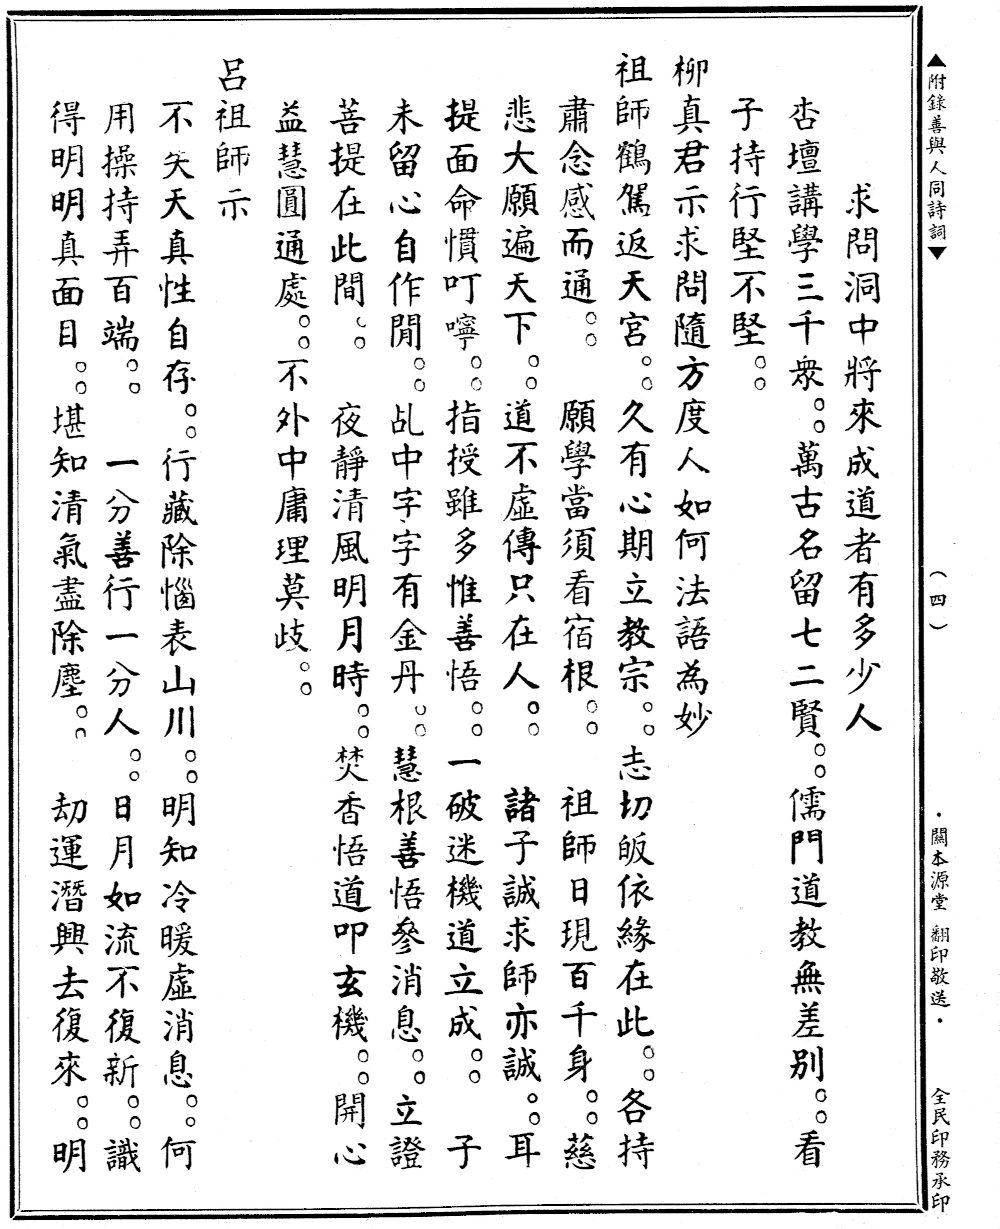 ▲附錄善與人同詩詞▼
（四）
・關本源堂 翻印敬送・
全民印務承印
求問洞中將來成道者有多少人
杏壇講學三千衆。。萬古名留七二賢。。儒門道教無差別。。看
子持行堅不堅。。
柳真君示求問隨方度人如何法語為妙
祖師鶴駕返天宮。。久有心期立教宗。。志切皈依緣在此。。各持
肅念感而通。。 願學當須看宿根。。 祖師日現百千身。。慈
悲大願遍天下。。道不虛傳只在人。。 諸子誠求師亦誠。。耳
提面命慣叮嚀。。指授雖多惟善悟。。一破迷機道立成。。 子
未留心自作閒。。乩中字字有金丹。。慧根善悟參消息。。立證
菩提在此間。。 夜靜清風明月時。。焚香悟道叩玄機。。開心
益慧圓通處。。不外中庸理莫歧。。
呂祖師示
不失天真性自存。。行藏除惱表山川。。明知冷暖虛消息。。何
用操持弄百端。。 一分善行一分人。。日月如流不復新。。識
得明明真面目。。堪知清氣盡除塵。。 劫運潛興去復來。。明